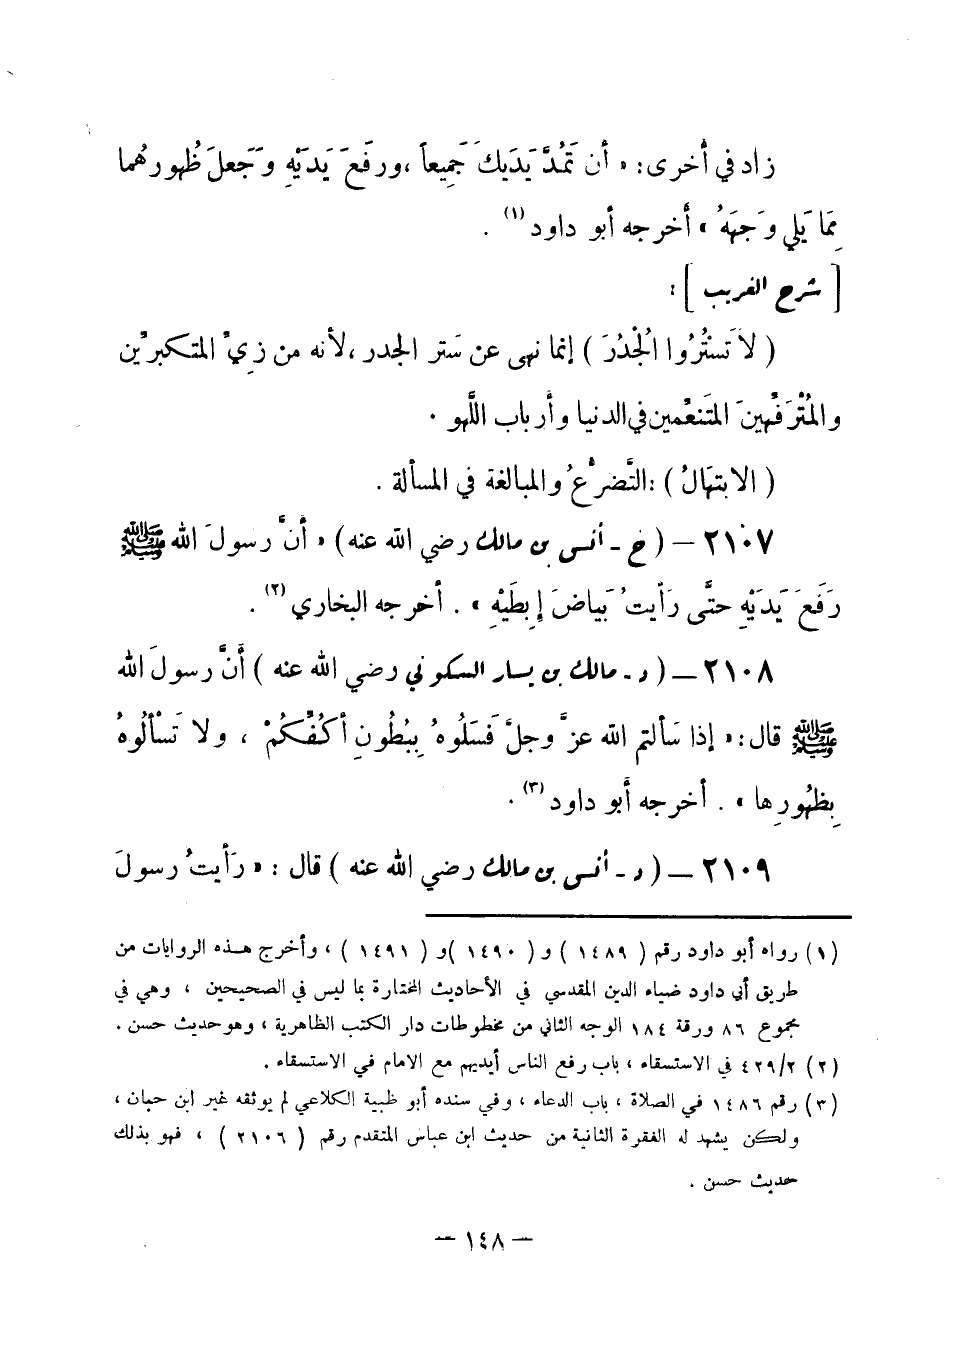 زاد في أُخرى: « أن تَمُدَّ يَدَيكَ جَمِيعاً ،ورفَعَ يَديْهِ وَجَعلَ ظُهورهُما
مِمَّا يَلي وَجهَهُ » أَخرجه أبو داود (١) .
[ شرح الغريب ] :
( لاَ تَسْتُرُوا الْجُدُرَ ) إنما نهى عن سَتر الجدر ،لأنه من زِيِّ المتكبرِّين
والمُتْرَفِّهينَ المتَنعِّمين في الدنيا وأرباب اللَّهو .
( الابتهَالُ ) :التَّضرُّعُ والمبالغة في المسألة .
٢١٠٧ — ( خ - أنس بن مالك رضي الله عنه ) « أنَّ رسولَ الله ﷺ
رَفَعَ يَدَيْهِ حتَّى رَأيتُ بَياضَ إبِطَيْهِ » . أخرجه البخاري (٢) .
٢١٠٨ — ( د - مالك بن يسار السكوني رضي الله عنه ) أنَّ رسولَ الله
ﷺ قال: « إذا سَألتم الله عزَّ وجلَّ فَسَلُوهُ بِبُطُونِ أكُفِّكُمْ ، ولا تَسْألُوهُ
بِظهُورِها » . أخرجه أبو داود (٣) .
٢١٠٩ — ( د - أنس بن مالك رضي الله عنه ) قال : « رَأيتُ رسولَ
(١) رواه أبو داود رقم ( ١٤٨٩ ) و ( ١٤٩٠ )و ( ١٤٩١ ) ، وأخرج هذه الروايات من
طريق أبي داود ضياء الدين المقدسي في الأحاديث المختارة بما ليس في الصحيحين ، وهي في
مجموع ٨٦ ورقة ١٨٤ الوجه الثاني من مخطوطات دار الكتب الظاهرية ، وهو حديث حسن .
(٢) ٤٢٩/٢ في الاستسقاء ، باب رفع الناس أيديهم مع الامام في الاستسقاء .
(٣) رقم ١٤٨٦ في الصلاة ، باب الدعاء ، وفي سنده أبو ظبية الكلاعي لم يوثقه غير ابن حبان ،
ولكن يشهد له الفقرة الثانية من حديث ابن عباس المتقدم رقم ( ٢١٠٦ ) ، فهو بذلك
حديث حسن .
— ١٤٨ —